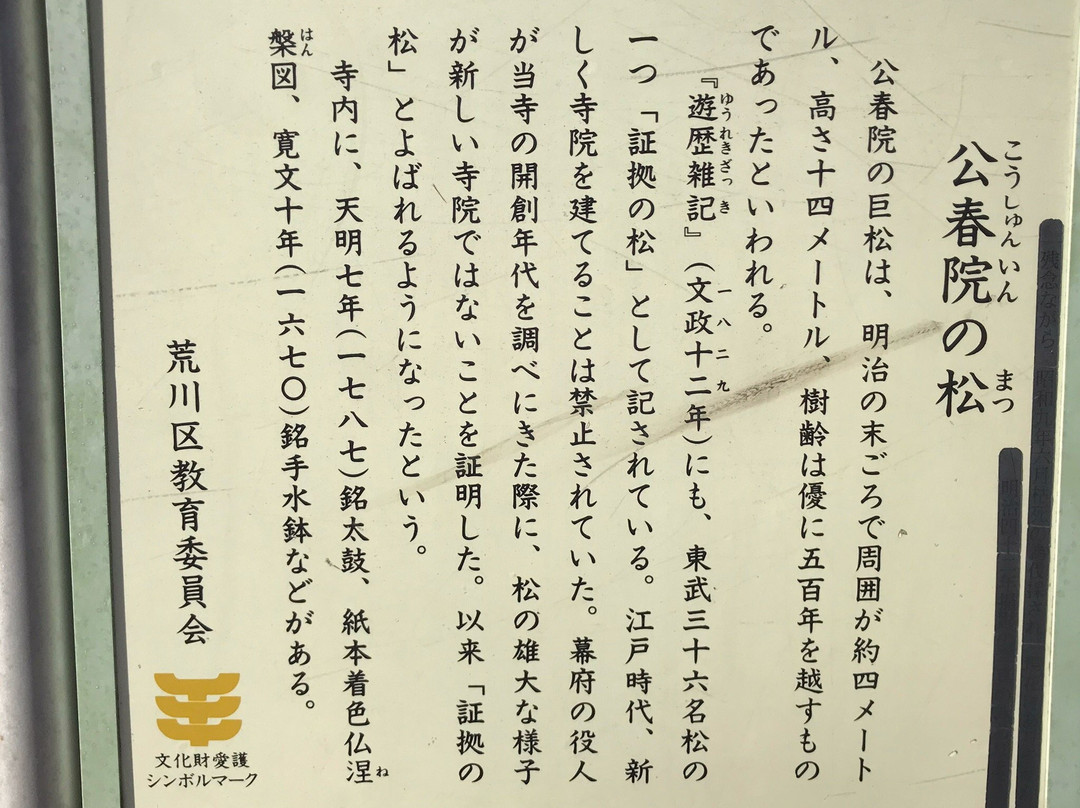 公春院の松
こうしゅんいん　まつ
公春院の巨松は、明治の末ごろで周囲が約四メート
ル、高さ十四メートル、樹齢は優に五百年を越すもの
であったといわれる。
『遊歴雑記』（文政十二年）にも、東武三十六名松の
ゆうれきざっき　一八二九
一つ「証拠の松」として記されている。江戸時代、新
しく寺院を建てることは禁止されていた。幕府の役人
が当寺の開創年代を調べにきた際に、松の雄大な様子
が新しい寺院ではないことを証明した。以来「証拠の
松」とよばれるようになったという。
寺内に、天明七年（一七八七）銘太鼓、紙本着色仏涅
ね
槃図、寛文十年（一六七〇）銘手水鉢などがある。
はん
荒川区教育委員会
文化財愛護
シンボルマーク